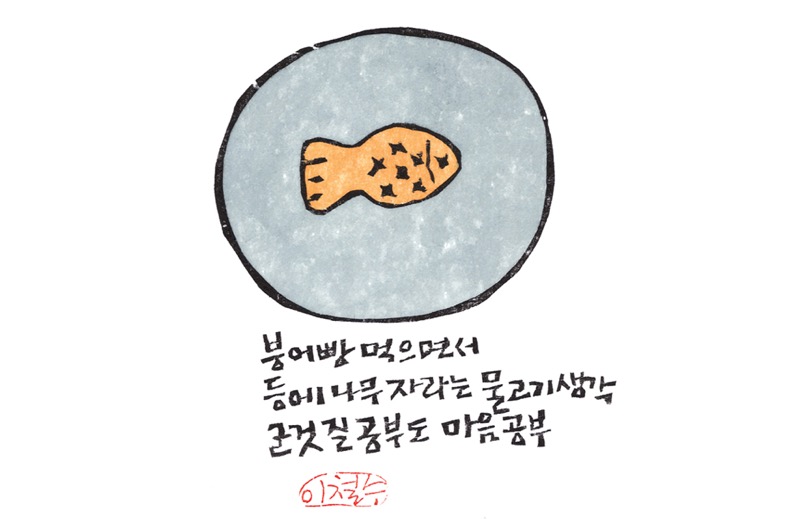 붕어빵 먹으면서
등에 나무 자라는 물고기 생각
군것질 공부도 마음공부
이철수